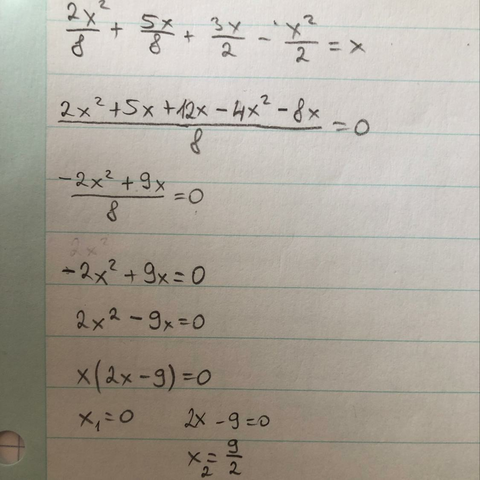 2x²/8 + 5x/8 + 3x/2 - x²/2 = x
2x² + 5x + 12x - 4x² - 8x/8 = 0
-2x² + 9x/8 = 0
-2x² + 9x = 0
2x² - 9x = 0
x(2x - 9) = 0
x₁ = 0 2x - 9 = 0
x₂ = 9/2